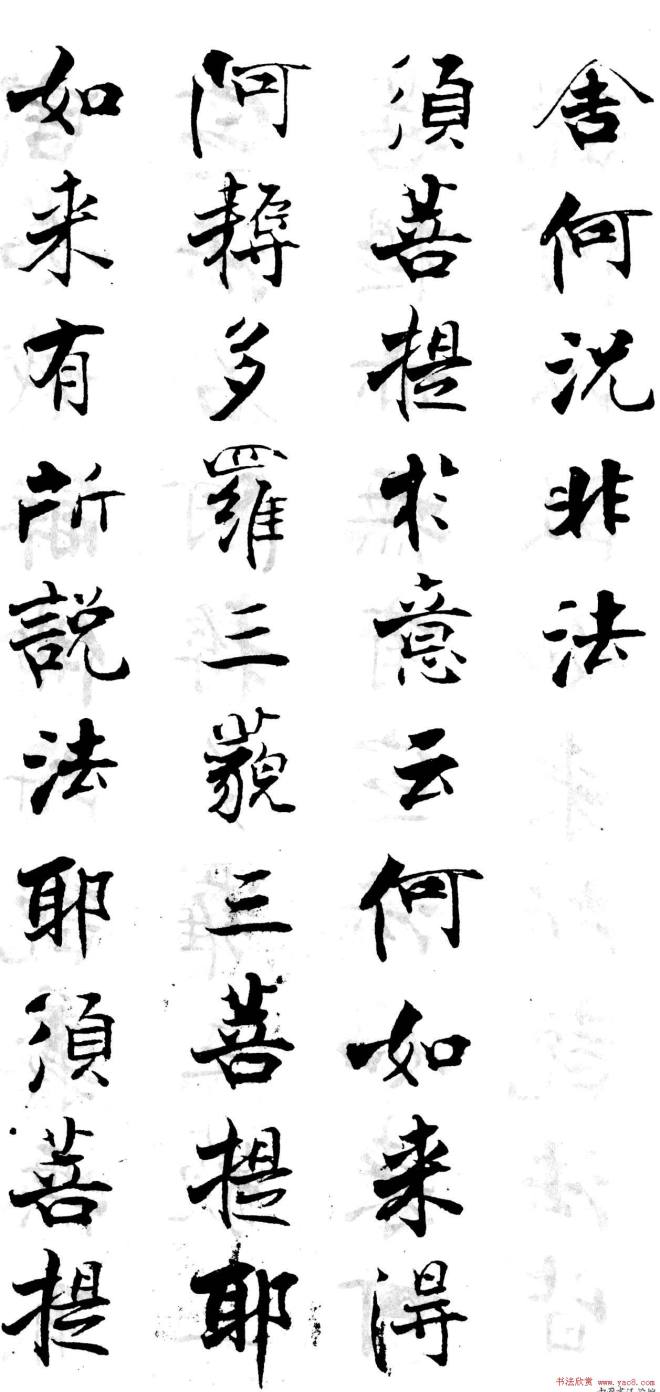 舍何况非法
須菩提於意云何如来得
阿耨多羅三藐三菩提耶
如来有所說法耶須菩提
书法欣赏 www.yac8.com